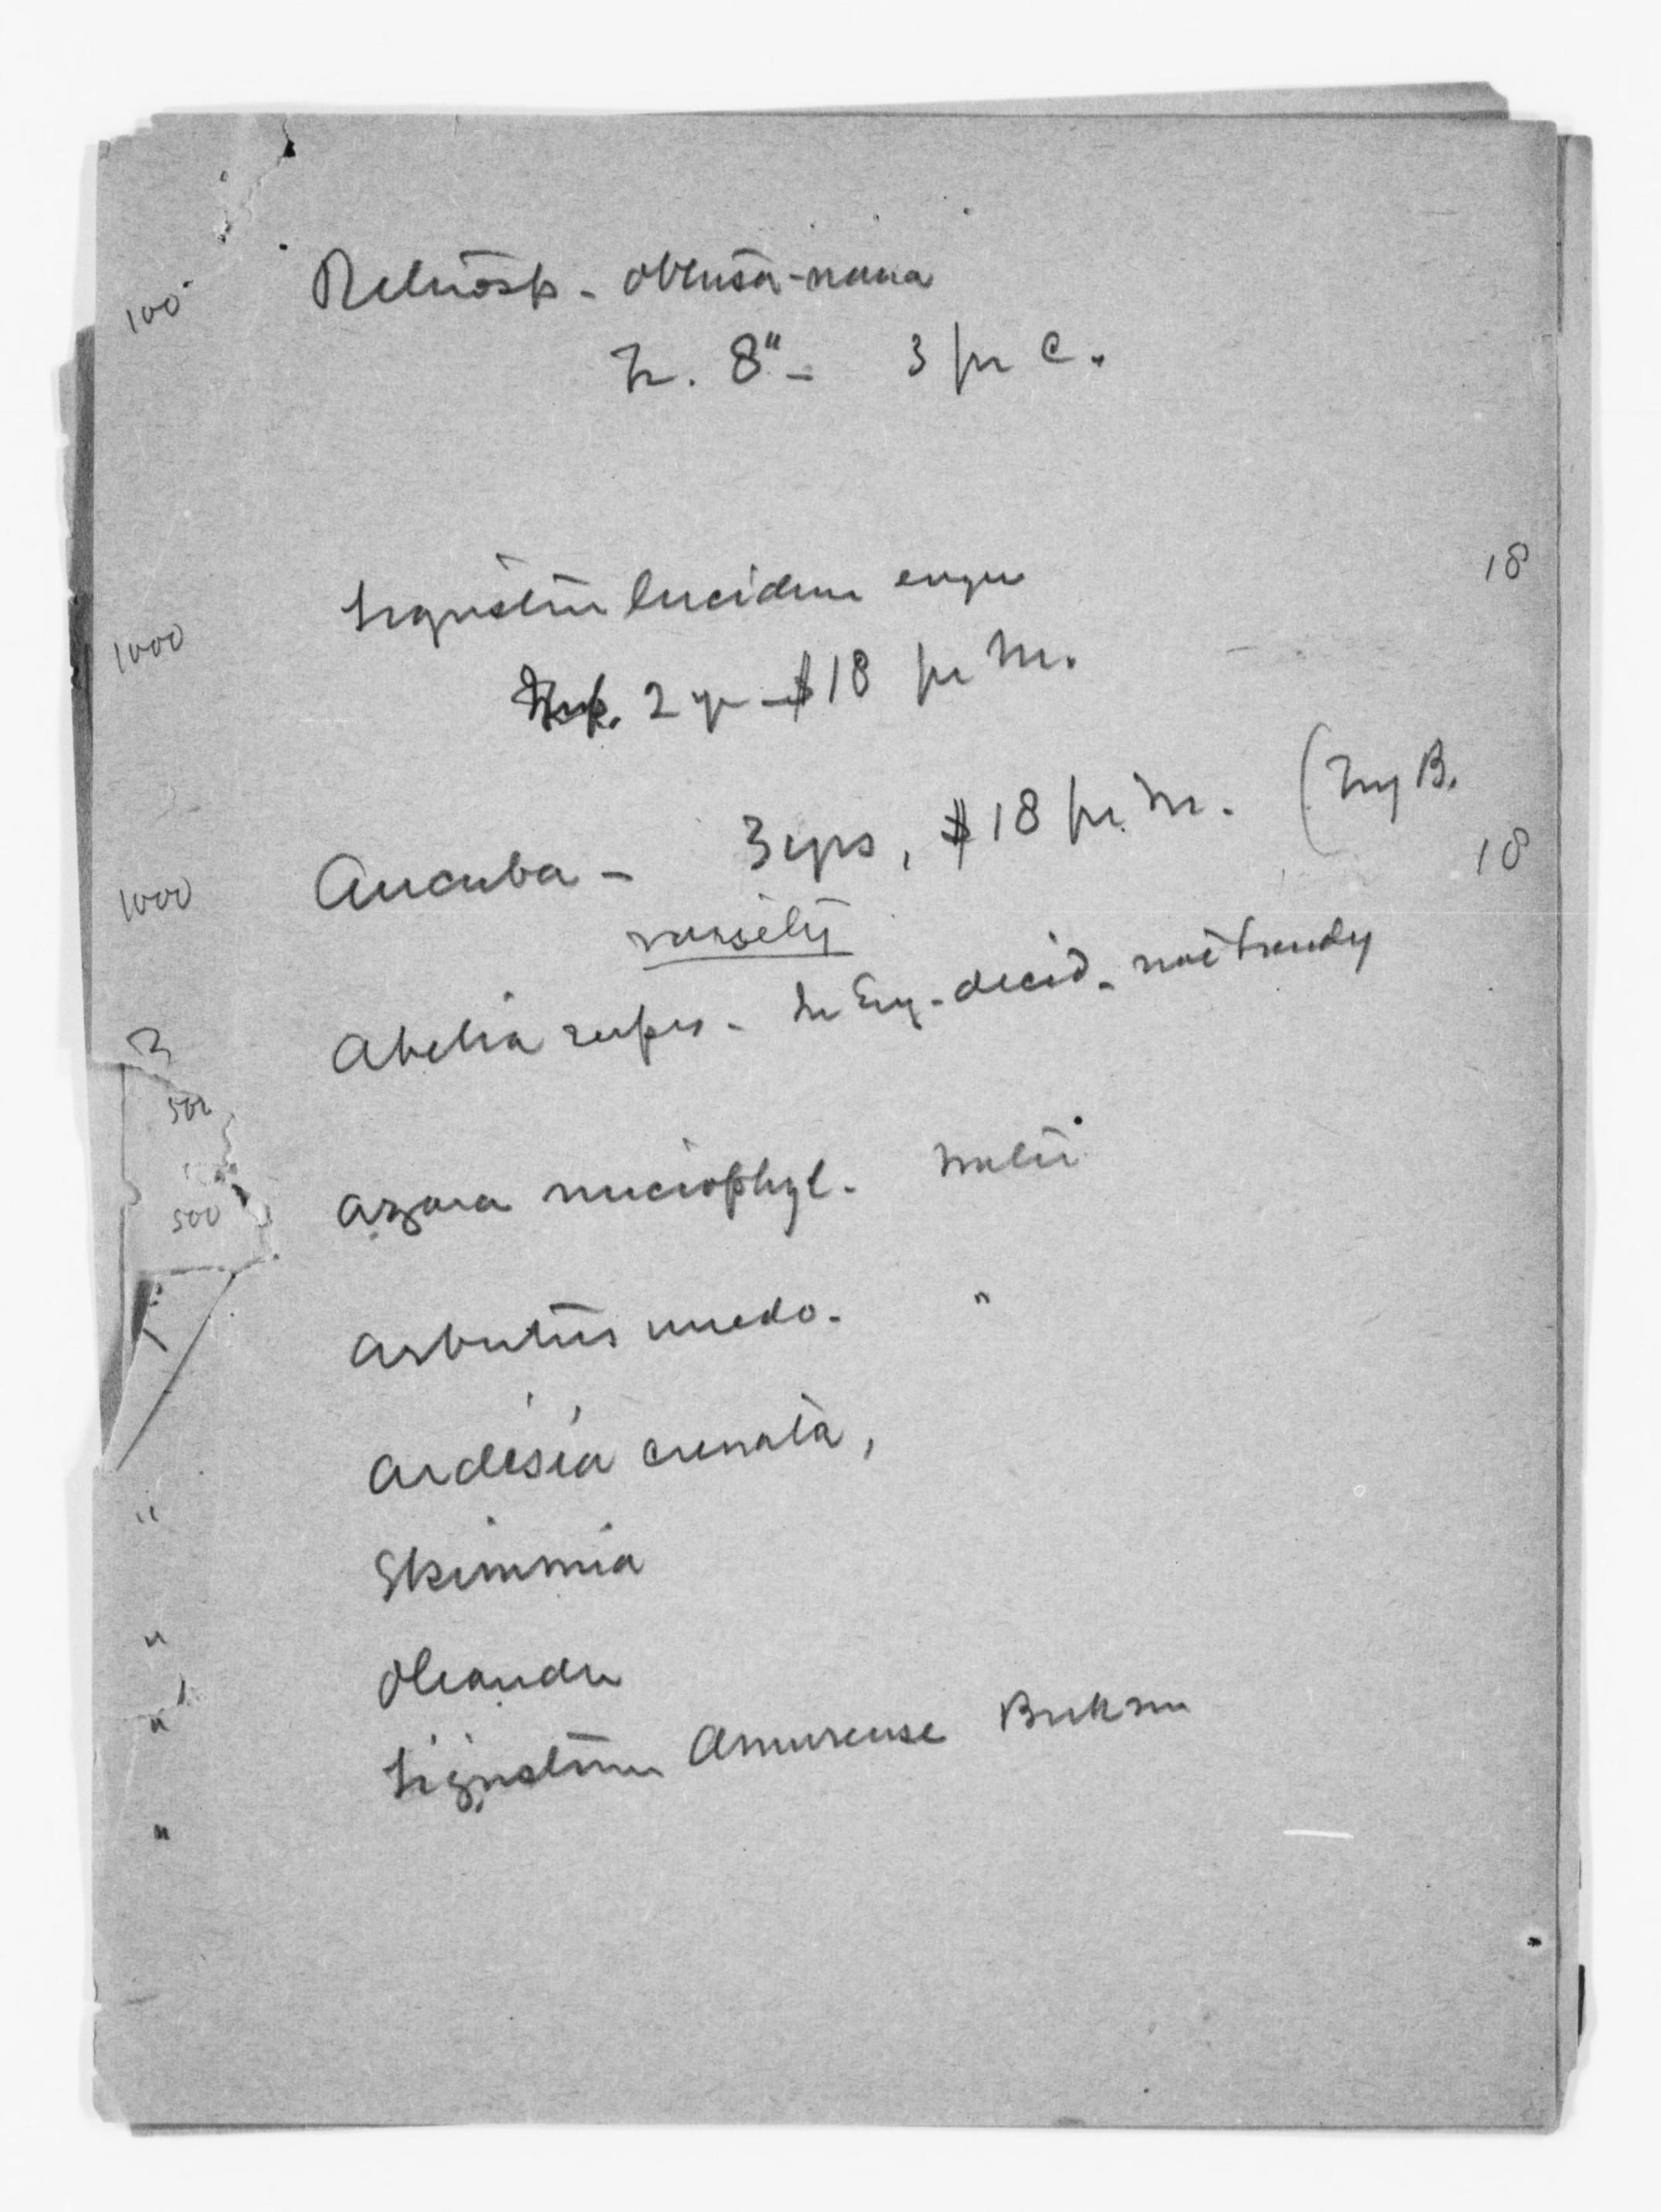 100 Retinosp - obtusa-nana
Tr. 8" - 3 pr C.
18
1000 Ligustrum lucidum
2 yr - $18 pr M.
1000 Aucuba - 3 yrs, $18 pr M. (My B.
18
variety
Abelia rupes - decid - not hardy
500
Azara microphyl.
500
Arbutus unedo. "
Ardisia crenata,
" Skimmia
" Oleander
" Ligustrum Amurense
"